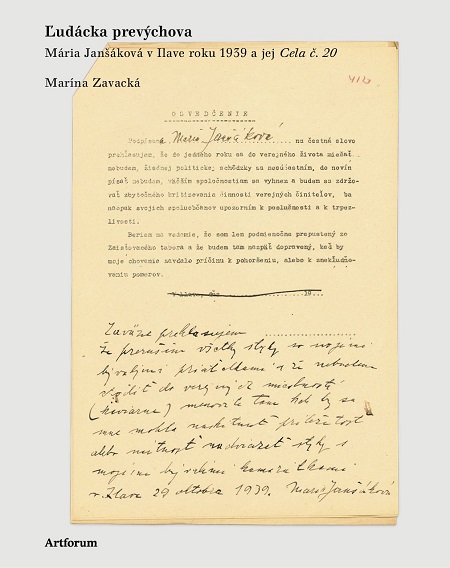 Ľudácka prevýchova
Mária Janšáková v Ilave roku 1939 a jej Cela č. 20
Marína Zavacká
OSVEDČENIE
Podpísaná Maria Janšáková na čestné slovo
prehlasujem, že do jedného roku sa do verejného života miešať
nebudem, žiadnej politickej schôdzky sa nesúčastním, do novín
písať nebudem, väčším spoločnostiam sa vyhnem a budem sa zdržo-
vať zbytočného kritizovania činnosti verejných činiteľov, ba
naopak svojich spoluobčanov upozorním k poslušnosti a k trpez-
livosti.
Beriem na vedomie, že som len podmienečne prepustený zo
Zaisťovacieho tábora a že budem tam nazpät dopravený, keď by
moje chovanie zavdalo príčinu k pohoršeniu, alebo k znekludňo-
vaniu pomerov.
V Ilave, dňa 19...
Zaväzne prehlasujem
že prerušim všetky styky so svojimi
bývalými priateľkami a že nebudem
chodiť do verejných miestností
(kaviarne) menovite tam kde by sa
mne mohla naskytnúť príležitosť
alebo nutnosť nadviazať styky s
mojimi bývalými kamarátkami
v Ilave 29 oktobra 1939. Maria Janšáková
Artforum